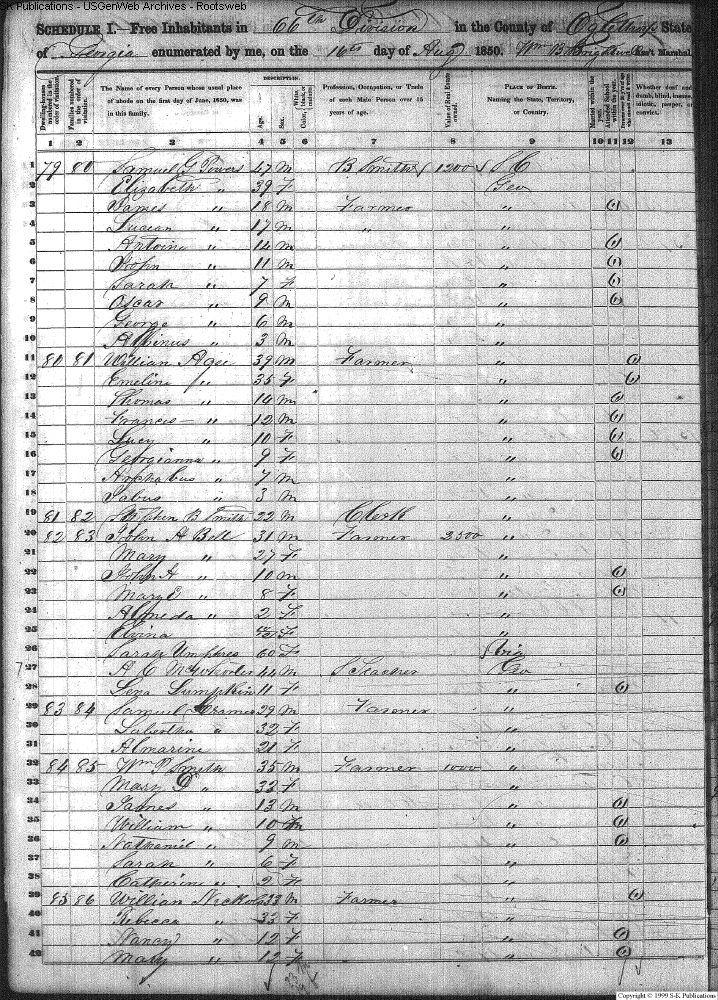 S-K Publications - USGenWeb Archives - Rootsweb
SCHEDULE I.—Free Inhabitants in 66th Division in the County of Oglethorpe State
of Georgia enumerated by me, on the 16th day of Augt 1850. Wm B Ass't Marshal.
DESCRIPTION.
Dwelling-houses numbered in the order of visitation.
Families numbered in the order of visitation.
The Name of every Person whose usual place of abode on the first day of June, 1850, was in this family.
Age.
Sex.
White, black, or mulatto.
Profession, Occupation, or Trade of each Male Person over 15 years of age.
Value of Real Estate owned.
PLACE OF BIRTH. Naming the State, Territory, or Country.
Married within the year.
Attended School within the year.
Whether deaf and dumb, blind, insane, idiotic, pauper, or convict.
1 2 3 4 5 6 7 8 9 10 11 12 13
1 79 80 Samuel G Powers 47 M B Smith 1200 S C
2 Elizabeth " 39 F Geo
3 James " 18 M Farmer " (1)
4 Lucian " 17 M " "
5 Antoine " 14 M " (1)
6 John " 11 M " (1)
7 Sarah " 7 F " (1)
8 Oscar " 9 M " (1)
9 George " 6 M "
10 Albinus " 3 M "
11 80 81 William 39 M Farmer " (1)
12 Emeline " 35 F " (1)
13 Thomas " 14 M " (1)
14 Francis " 12 M " (1)
15 Lucy " 10 F " (1)
16 Georgianna " 9 F " (1)
17 " 7 M "
18 " 3 M "
19 81 82 Stephen B Smith 22 M Clerk "
20 82 83 John A Bell 31 M Farmer 2500 "
21 Mary " 27 F "
22 John A " 10 M " (1)
23 Mary E " 8 F " (1)
24 Almeda " 2 F "
25 Elvina F "
26 Sarah Umphres 60 F
27 A C McWhorter 44 M S Teacher Geo
28 Lena Lumpkin 11 F " (1)
29 83 84 Samuel 29 M Farmer "
30 Sabertha " 32 F "
31 Almarine 21 F "
32 84 85 Wm P Smith 35 M Farmer 1000 "
33 Mary D " 32 F "
34 James " 13 M " (1)
35 William " 10 M " (1)
36 Nathaniel " 9 M " (1)
37 Sarah " 6 F "
38 Catherine " 2 F "
39 85 86 William Nickols 33 M Farmer " (1)
40 Rebecca " 33 F "
41 Nancy " 12 F " (1)
42 Mary " 12 F " (1)
Copyright © 1999 S-K Publications